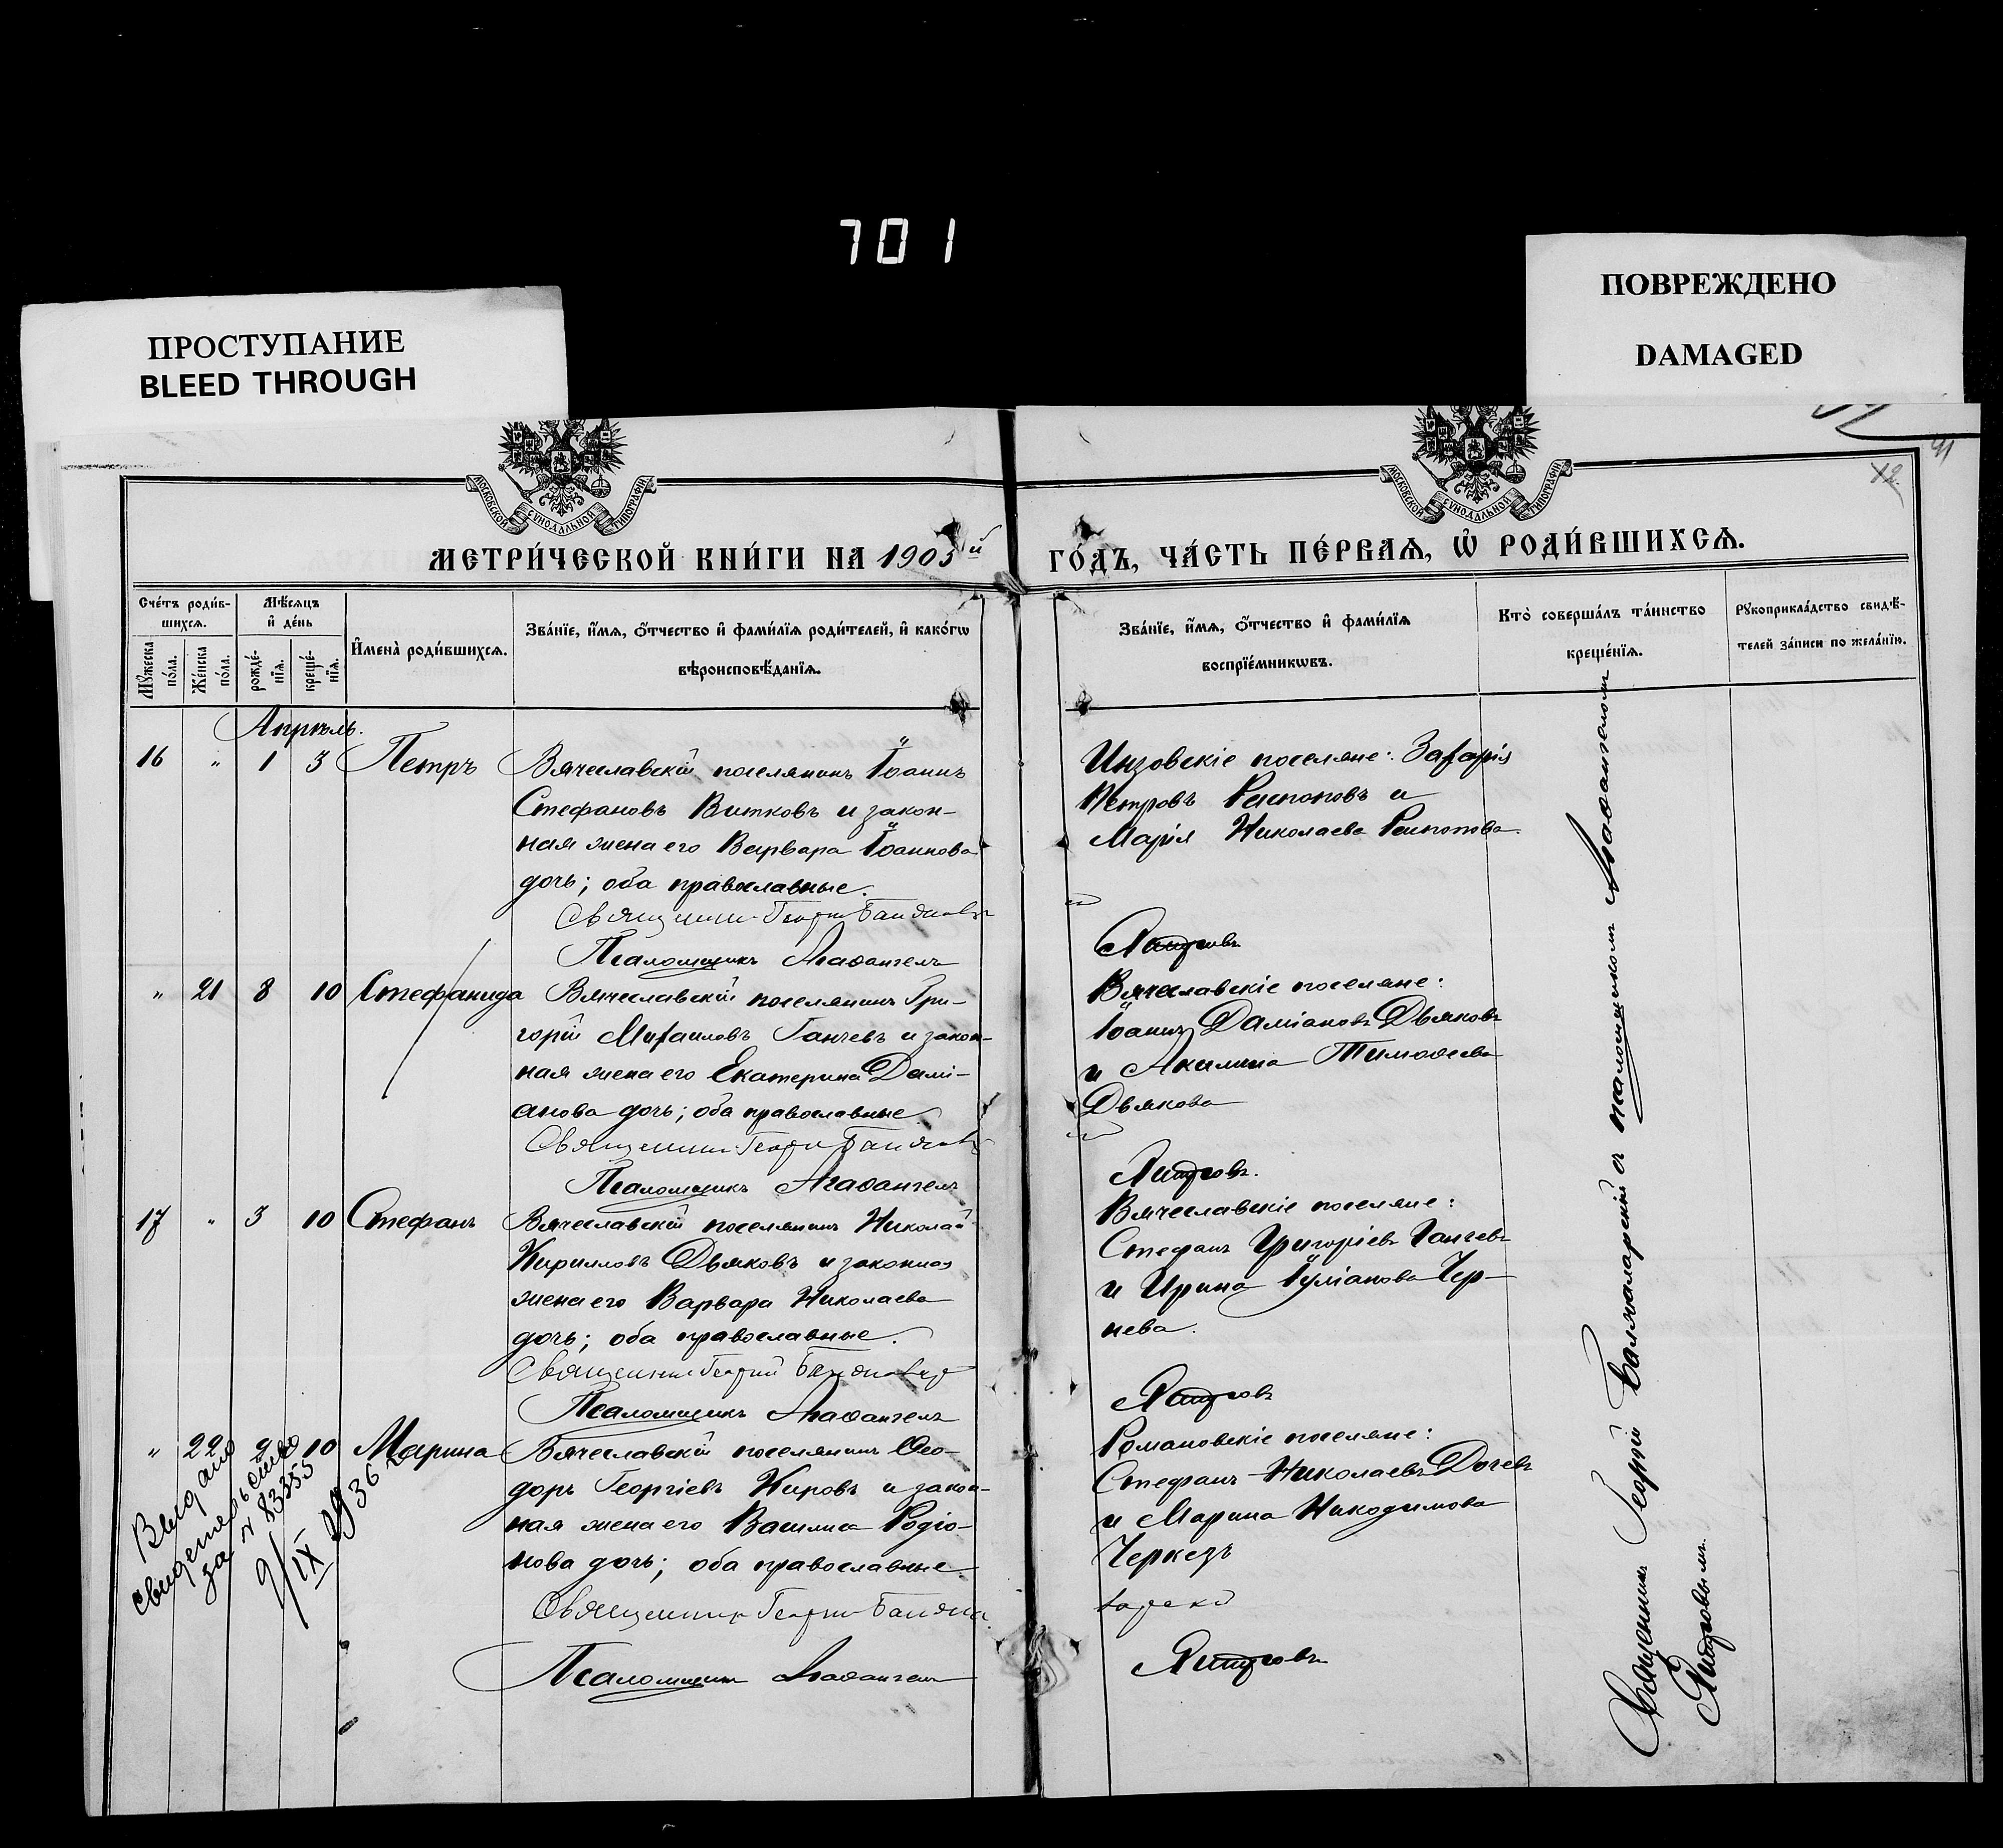 701
ПРОСТУПАНИЕ
BLEED THROUGH
ПОВРЕЖДЕНО
DAMAGED
91
12.
МОСКОВСКОЙ СѴНОДАЛЬНОЙ ТИПОГРАФІИ
МОСКОВСКОЙ СѴНОДАЛЬНОЙ ТИПОГРАФІИ
МЕТРИ́ЧЕСКОЙ КНИ́ГИ НА 1903й ГО́ДЪ, ЧА́СТЬ ПЕ́РВАѦ, Ѡ҆ РОДИ́ВШИХСѦ.
Сче́тъ роди́в-
шихсѧ.
Мꙋжеска по́ла.
Же́нска по́ла.
Мѣ́сѧцъ
и҆ де́нь
рожде́-
нїѧ.
креще́-
нїѧ.
И҆мена̀ роди́вшихсѧ.
Зва́нїе, и҆́мѧ, ѻ҆́тчество и҆ фами́лїѧ роди́телей, и҆ како́гѡ
вѣроисповѣ́данїѧ.
Зва́нїе, и҆́мѧ, ѻ҆́тчество и҆ фами́лїѧ
воспрїе́мникѡвъ.
Кто̀ соверша́лъ та́инство
креще́нїѧ.
Рꙋкоприкла́дство свидѣ́-
телей за́писи по жела́нїю.
Апрѣль.
16 " 1 3 Петръ
Вячеславскій поселянинъ Іоаннъ
Стефановъ Витковъ и закон-
ная жена его Варвара Іоаннова
дочь; оба православные.
Священникъ Георгій
Псаломщикъ Агаѳангелъ
Инзовскіе поселяне: Захарія
Петровъ Распоповъ и
Марія Николаева Распопова.
" 21 8 10 Стефанида
Вячеславскій поселянинъ Гри-
горій Михаиловъ Ганчевъ и закон-
ная жена его Екатерина Дамі-
анова дочь; оба православные.
Священникъ Георгій
Псаломщикъ Агаѳангелъ
Вячеславскіе поселяне:
Іоаннъ Даміановъ Дьяковъ
и Акилина Тимоѳеева
Дьякова
17 " 3 10 Стефанъ
Вячеславскій поселянинъ Николай
Кирилловъ Дьяковъ и законная
жена его Варвара Николаева
дочь; оба православные.
Священникъ Георгій
Псаломщикъ Агаѳангелъ
Вячеславскіе поселяне:
Стефанъ Григоріевъ Ганчевъ
и Ирина Іуліанова Чер-
нева.
" 22 9 10 Марина
Вячеславскій поселянинъ Ѳео-
доръ Георгіевъ Кировъ и закон-
ная жена его Василиса Родіо-
нова дочь; оба православные.
Священникъ Георгій
Псаломщикъ Агаѳангелъ
Романовскіе поселяне:
Стефанъ Николаевъ Дочевъ
и Марина Никодимова
Черкезъ
Выдано
свидетельство
за № 83355
9/IX 1936 г
Священникъ Георгій съ псаломщикомъ Агаѳангеломъ